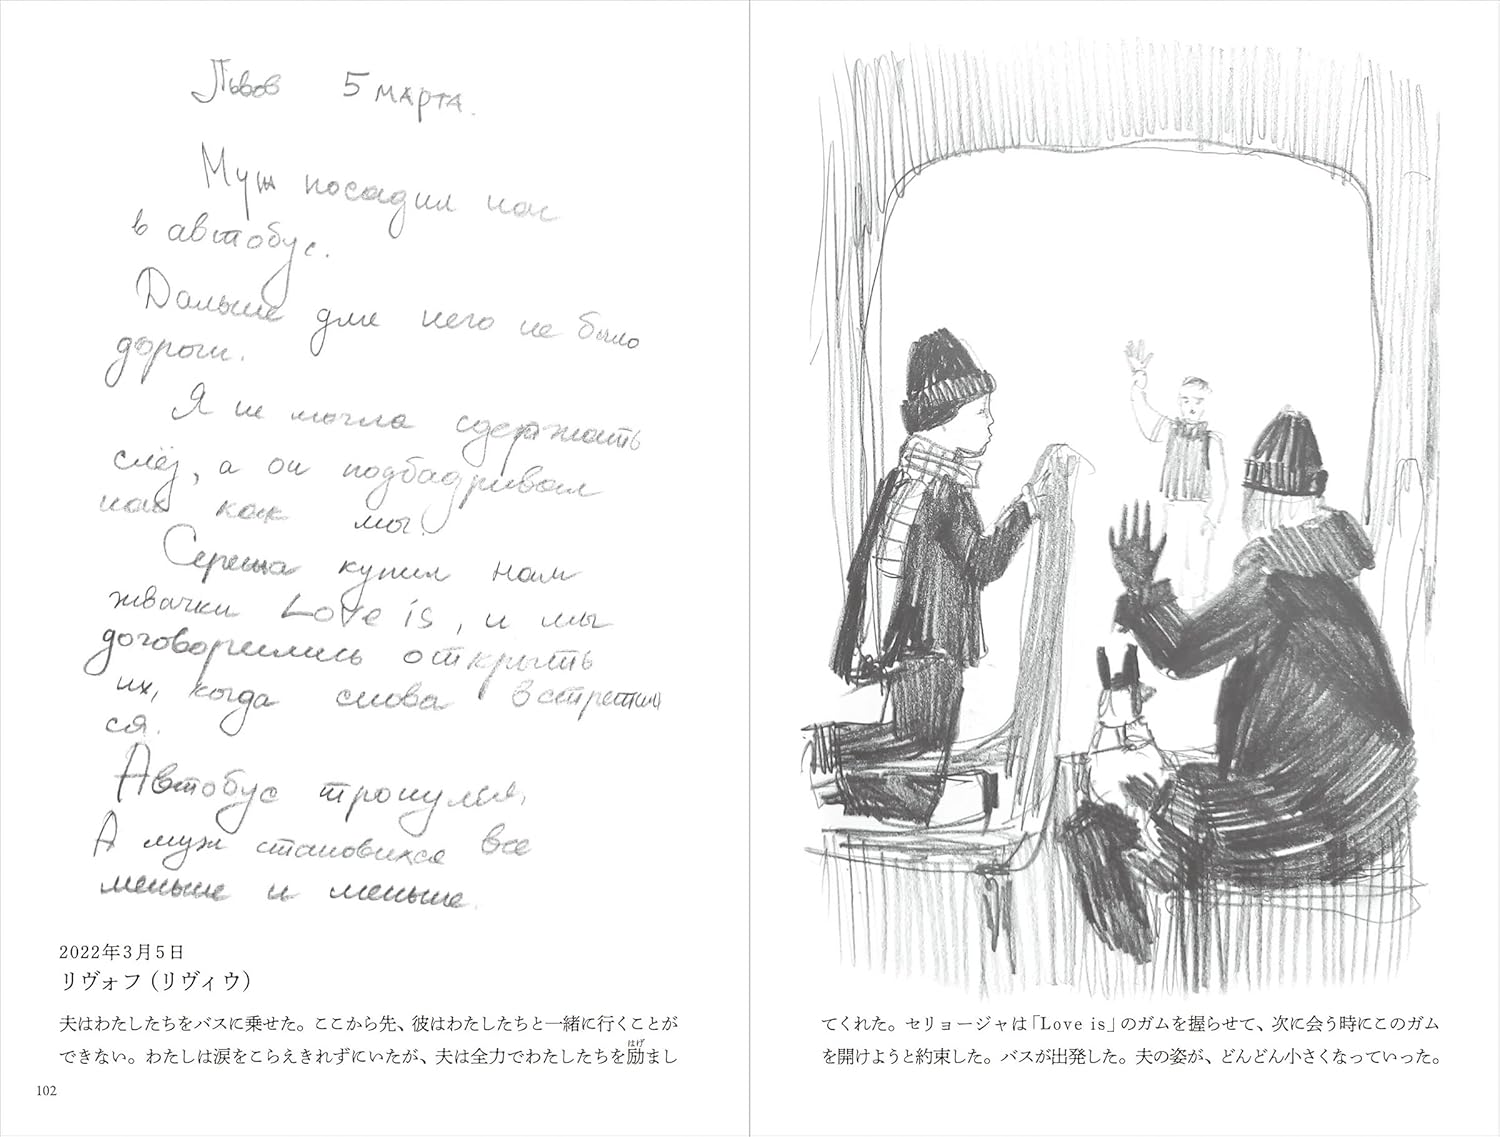 Львов 5 марта.
Муж посадил нас
в автобус.
Дальше для него не было
дороги.
Я не могла сдержать
слёз, а он подбадривал
нас как мог.
Сережа купил нам
жвачки Love is, и мы
договорились открыть
их, когда снова встретим
ся.
Автобус тронулся,
А муж становился все
меньше и меньше.
2022年3月5日
リヴォフ（リヴィウ）
夫はわたしたちをバスに乗せた。ここから先、彼はわたしたちと一緒に行くことが
できない。わたしは涙をこらえきれずにいたが、夫は全力でわたしたちを励まし
はげ
102
てくれた。セリョージャは「Love is」のガムを握らせて、次に会う時にこのガム
を開けようと約束した。バスが出発した。夫の姿が、どんどん小さくなっていった。